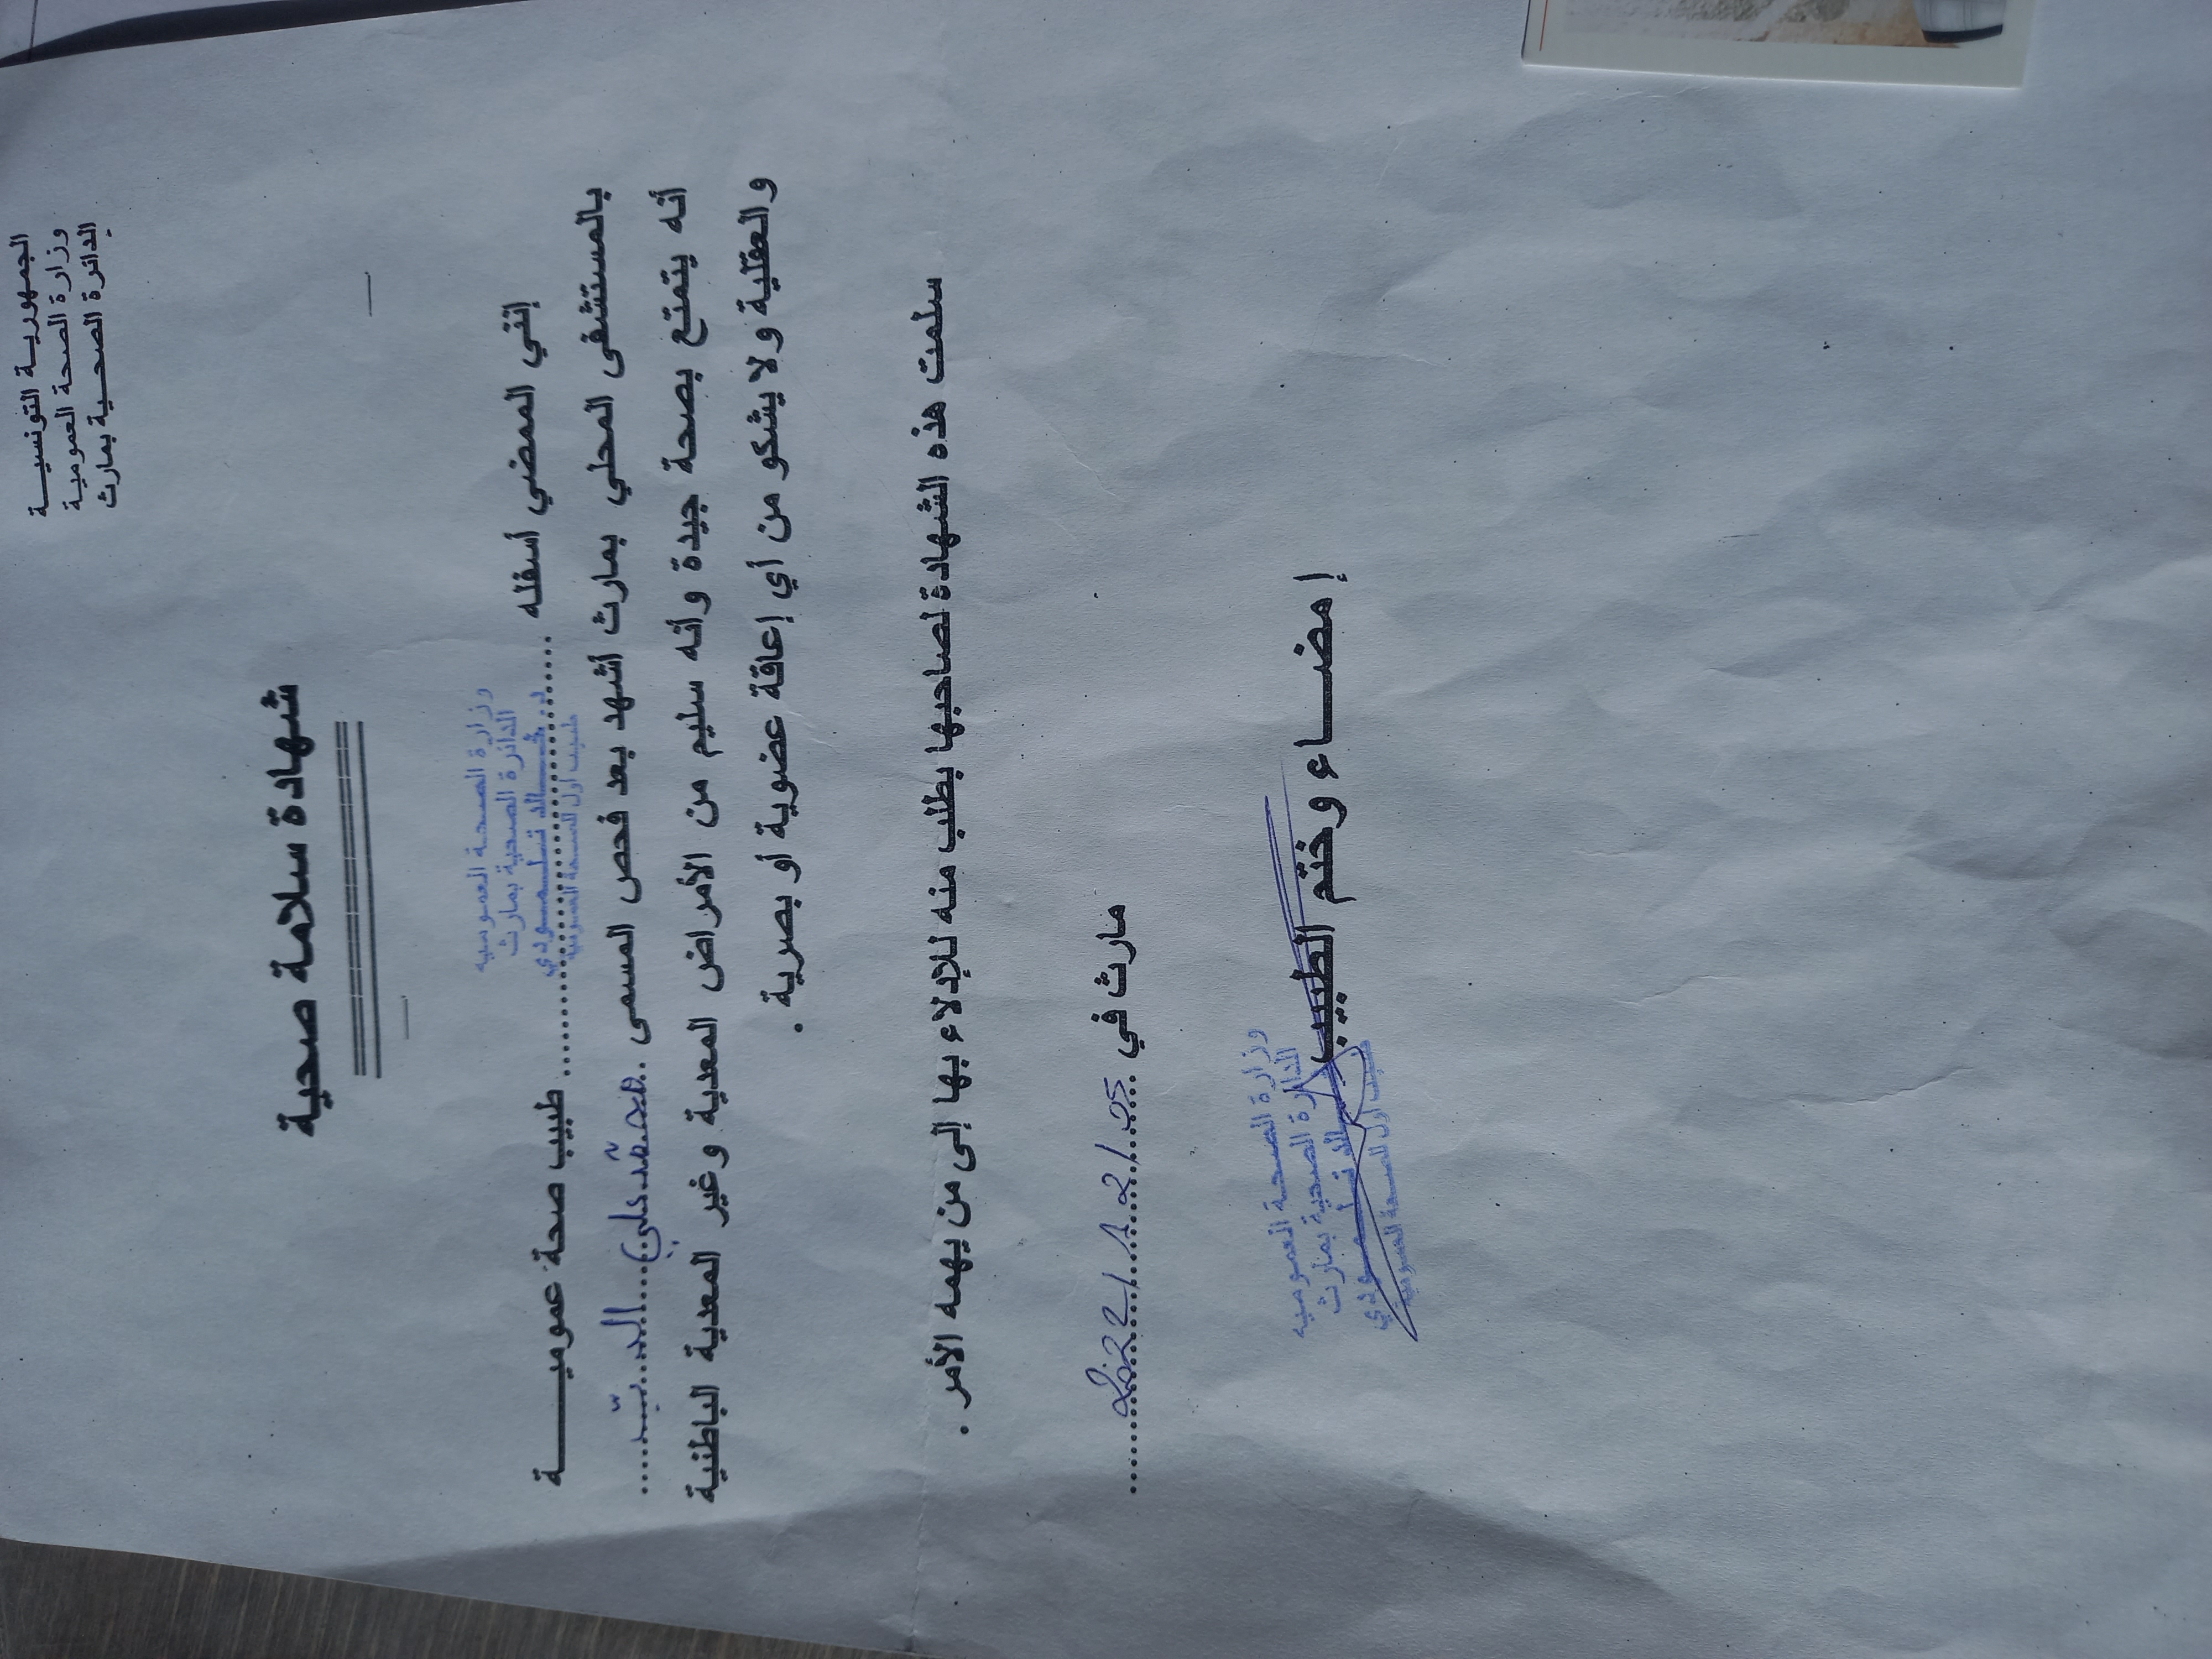 الجمهورية التونسية
وزارة الصحة العمومية
الدائرة الصحية بمارث
شهادة سلامة صحية
وزارة الصحة العمومية
الدائرة الصحية بمارث
طبيب أول للصحة العمومية
إنني الممضي أسفله .............................. طبيب صحة عمومية
بالمستشفى المحلي بمارث أشهد بعد فحص المسمى ..محمّد علي....الد
أنه يتمتع بصحة جيدة وأنه سليم من الأمراض المعدية وغير المعدية الباطنية
والعقلية ولا يشكو من أي إعاقة عضوية أو بصرية .
سلمت هذه الشهادة لصاحبها بطلب منه للإدلاء بها إلى من يهمه الأمر .
مارث في
إمضاء وختم الطبيب
وزارة الصحة العمومية
الدائرة الصحية بمارث
طبيب أول للصحة العمومية